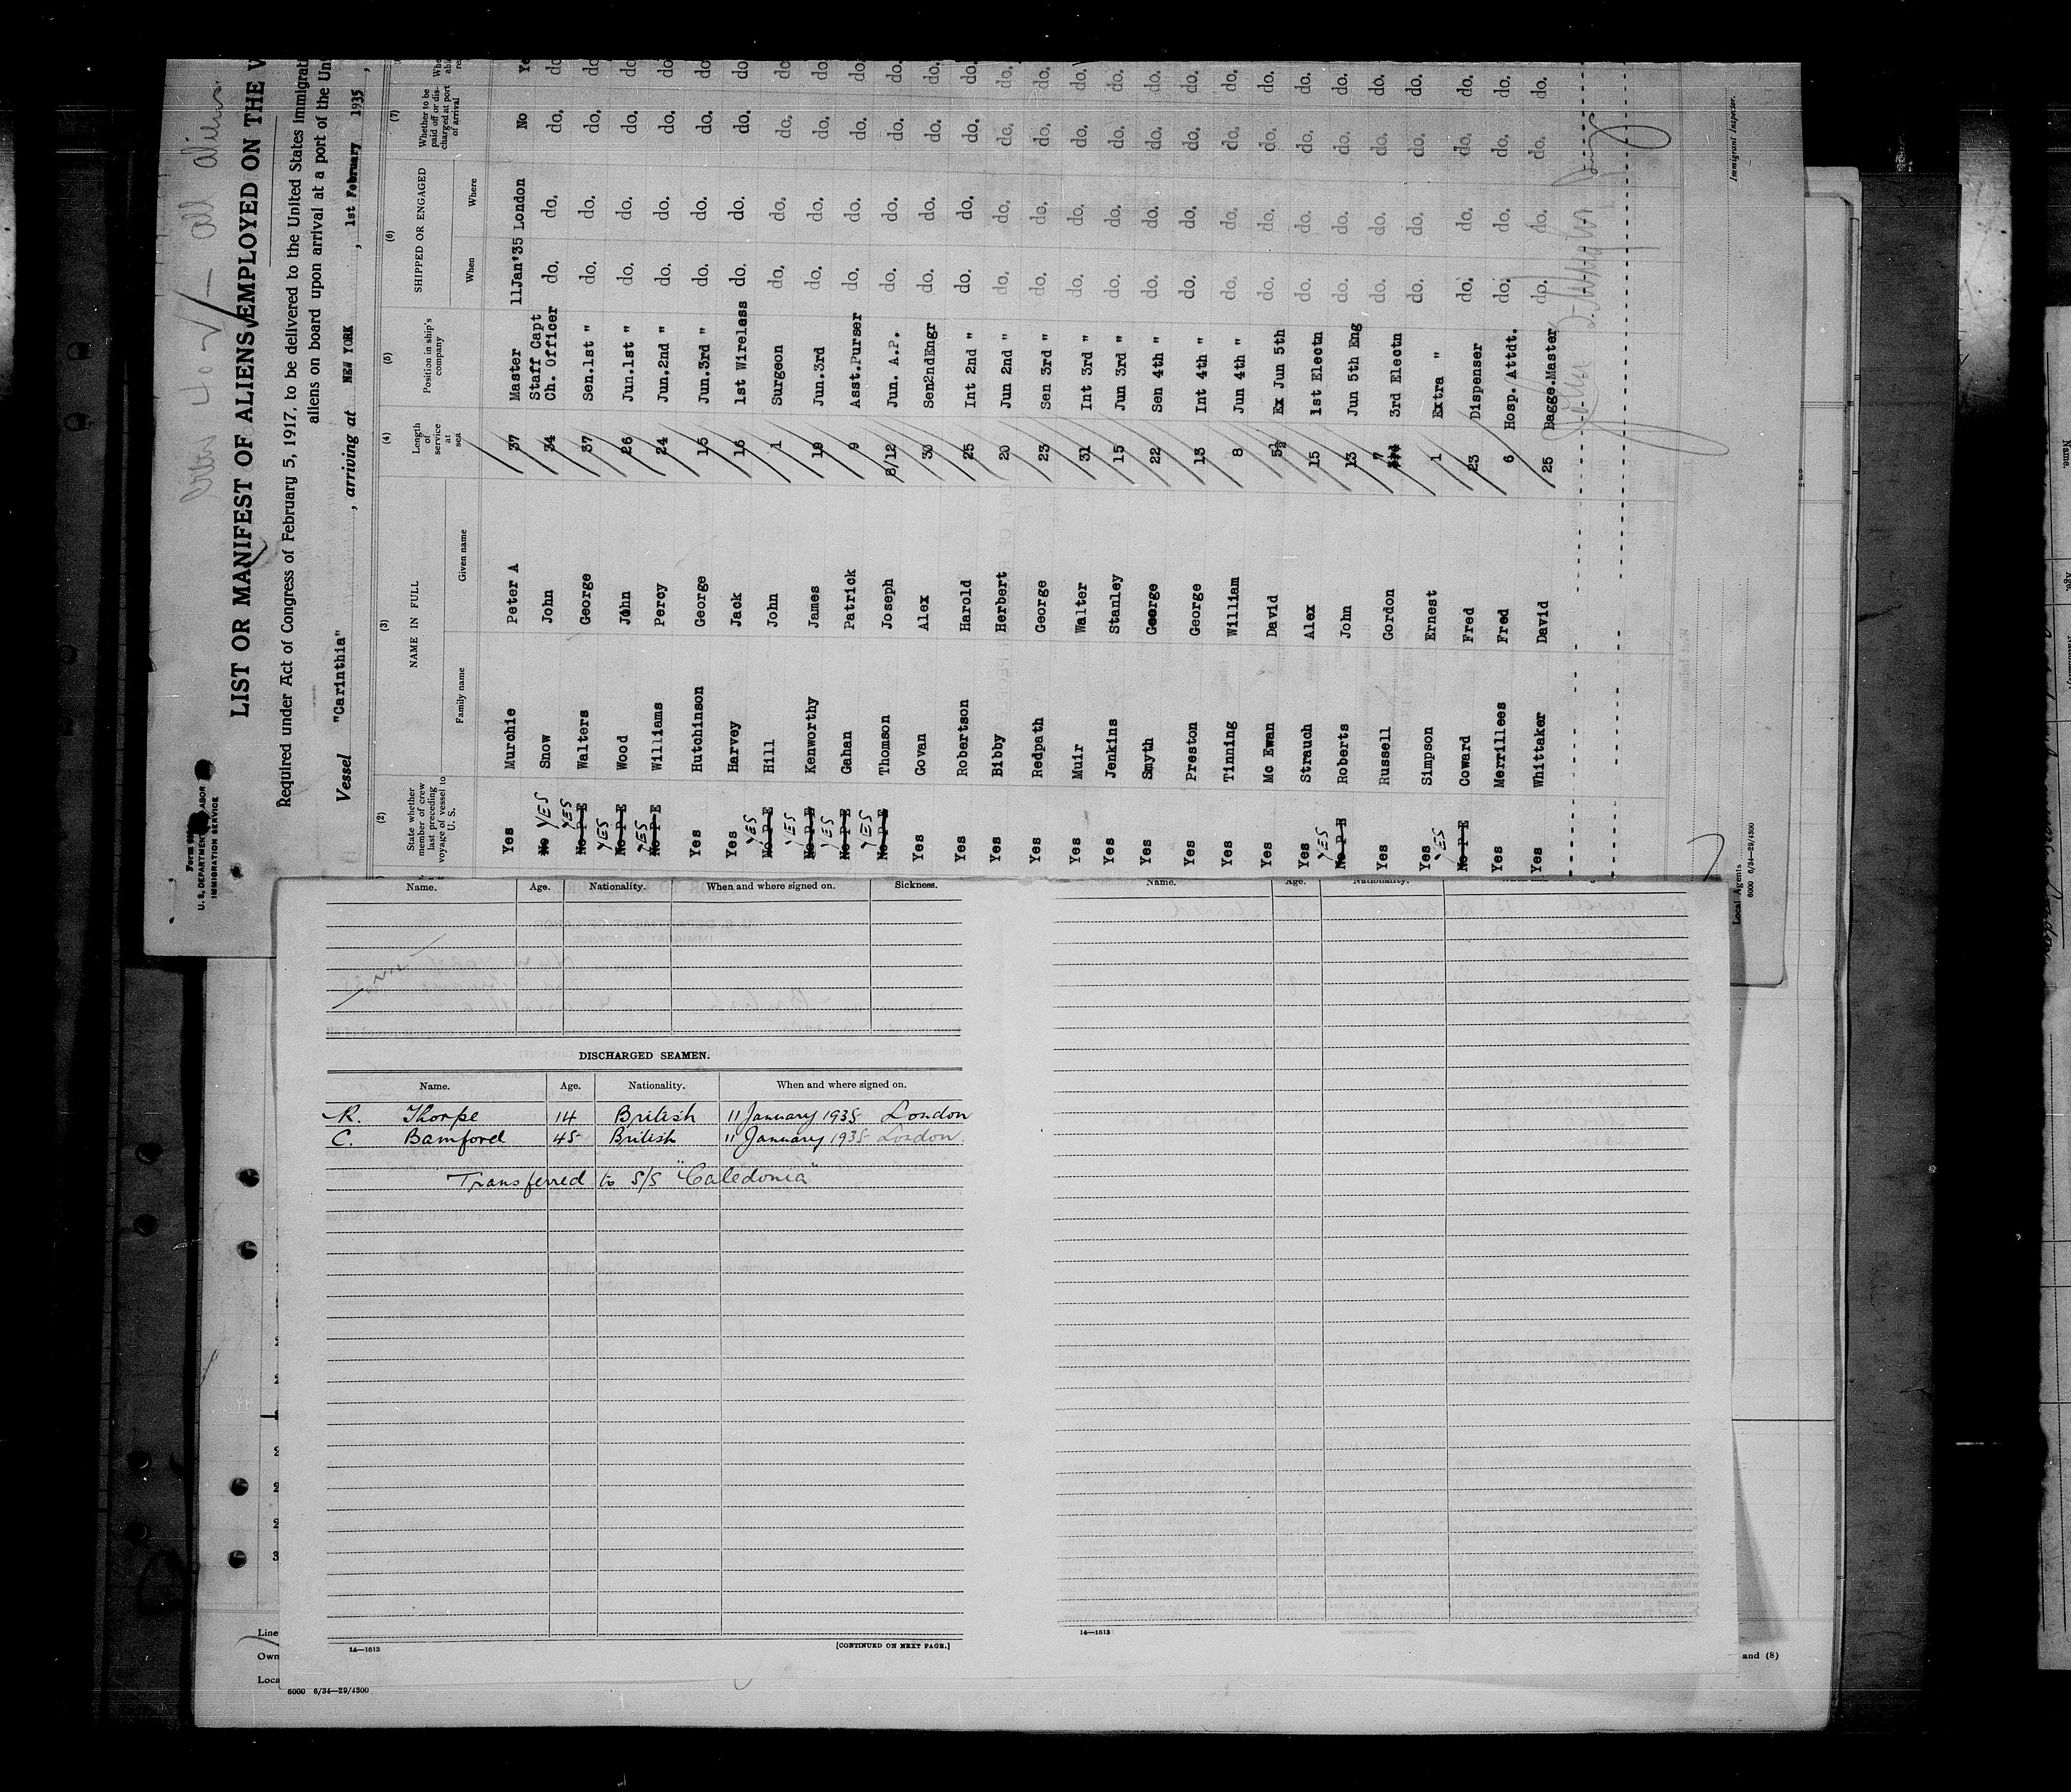 Form
U. S. DEPARTMENT LABOR
IMMIGRATION SERVICE
LIST OR MANIFEST OF ALIENS EMPLOYED ON THE V
Required under Act of Congress of February 5, 1917, to be delivered to the United States immigrati
aliens on board upon arrival at a port of the Un
Vessel "Carinthia" , arriving at NEW YORK , 1st February 1935 ,
(2) (3) (4) (5) (6) (7)
State whether member of crew last preceding voyage of vessel to U. S. NAME IN FULL Length of service at sea Position in ship's company SHIPPED OR ENGAGED Whether to be paid off or discharged at port of arrival
Family name Given name When Where
Yes Murchie Peter A 37 Master 11Jan'35 London No Ye
No YES Snow John 34 Staff Capt Ch. Officer do. do. do. do
No P E YES Walters George 37 Sen.1st " do. do. do. do
No P E YES Wood John 26 Jun.1st " do. do. do. do
No P E YES Williams Percy 24 Jun.2nd " do. do. do. do
Yes Hutchinson George 15 Jun.3rd " do. do. do. do
Yes Harvey Jack 16 1st Wireless do. do. do. do.
No P E YES Hill John 1 Surgeon do. do. do. do.
No P E YES Kenworthy James 19 Jun.3rd do. do. do. do.
No P E YES Gahan Patrick 9 Asst.Purser do. do. do. do.
No P E YES Thomson Joseph 8/12 Jun. A.P. do. do. do. do.
Yes Govan Alex 30 Sen2ndEngr do. do. do. do.
Yes Robertson Harold 25 Int 2nd " do. do. do. do.
Yes Bibby Herbert 20 Jun 2nd " do. do. do. do.
Yes Redpath George 23 Sen 3rd " do. do. do. do.
Yes Muir Walter 31 Int 3rd " do. do. do. do.
Yes Jenkins Stanley 15 Jun 3rd " do. do. do. do.
Yes Smyth George 22 Sen 4th " do. do. do. do.
Yes Preston George 13 Int 4th " do. do. do. do.
Yes Tinning William 8 Jun 4th " do. do. do. do.
Yes Mc Ewan David 5½ Ex Jun 5th do. do. do. do.
Yes Strauch Alex 15 1st Electn do. do. do. do.
No P E YES Roberts John 13 Jun 5th Eng do. do. do. do.
Yes Russell Gordon 7 3rd Electn do. do. do. do.
Yes Simpson Ernest 1 Extra " do. do. do. do.
No P E YES Coward Fred 23 Dispenser do. do. do. do.
Yes Merrillees Fred 6 Hosp. Attdt. do. do. do. do.
Yes Whittaker David 25 Bagge.Master do. do. do. do.
Immigrant Inspector.
Local Agents
6000 6/34—29/4300
Name. Age. Nationality. When and where signed on. Sickness.
DISCHARGED SEAMEN.
Name. Age. Nationality. When and where signed on.
R. Thorpe 14 British 11 January 1935 London
C. Bamford 45 British 11 January 1935 London.
Transferred to S/S "Caledonia"
14—1613
[CONTINUED ON NEXT PAGE.]
Name. Age. Nationality.
14—1613
Line
Own
Loca
6000 6/34—29/4300
and (8)